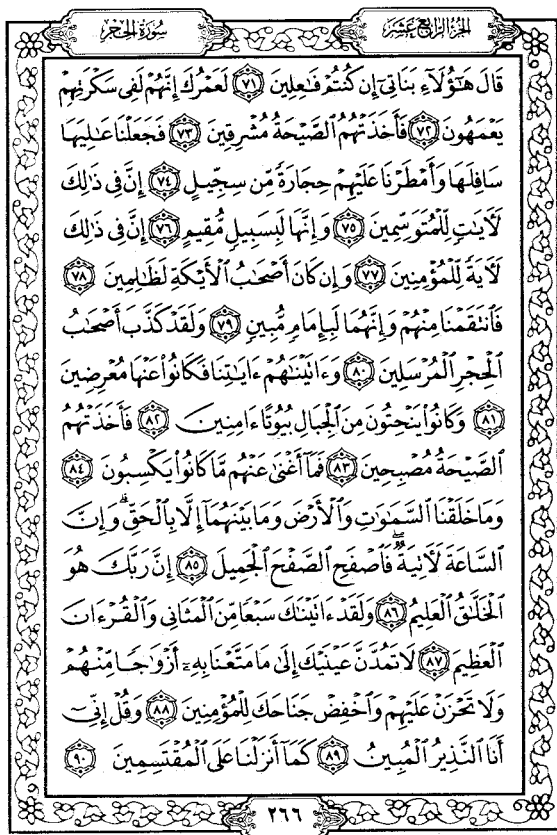 الجزء الرابع عشر
سورة الحجر
قَالَ هَٰٓؤُلَآءِ بَنَاتِىٓ إِن كُنتُمْ فَٰعِلِينَ ٧١ لَعَمْرُكَ إِنَّهُمْ لَفِى سَكْرَتِهِمْ
يَعْمَهُونَ ٧٢ فَأَخَذَتْهُمُ الصَّيْحَةُ مُشْرِقِينَ ٧٣ فَجَعَلْنَا عَٰلِيَهَا
سَافِلَهَا وَأَمْطَرْنَا عَلَيْهِمْ حِجَارَةً مِّن سِجِّيلٍ ٧٤ إِنَّ فِى ذَٰلِكَ
لَـَٔايَٰتٍ لِّلْمُتَوَسِّمِينَ ٧٥ وَإِنَّهَا لَبِسَبِيلٍ مُّقِيمٍ ٧٦ إِنَّ فِى ذَٰلِكَ
لَـَٔايَةً لِّلْمُؤْمِنِينَ ٧٧ وَإِن كَانَ أَصْحَٰبُ الْأَيْكَةِ لَظَٰلِمِينَ ٧٨
فَانتَقَمْنَا مِنْهُمْ وَإِنَّهُمَا لَبِإِمَامٍ مُّبِينٍ ٧٩ وَلَقَدْ كَذَّبَ أَصْحَٰبُ
الْحِجْرِ الْمُرْسَلِينَ ٨٠ وَءَاتَيْنَٰهُمْ ءَايَٰتِنَا فَكَانُوا۟ عَنْهَا مُعْرِضِينَ
٨١ وَكَانُوا۟ يَنْحِتُونَ مِنَ الْجِبَالِ بُيُوتًا ءَامِنِينَ ٨٢ فَأَخَذَتْهُمُ
الصَّيْحَةُ مُصْبِحِينَ ٨٣ فَمَآ أَغْنَىٰ عَنْهُم مَّا كَانُوا۟ يَكْسِبُونَ ٨٤
وَمَا خَلَقْنَا السَّمَٰوَٰتِ وَالْأَرْضَ وَمَا بَيْنَهُمَآ إِلَّا بِالْحَقِّ ۗ وَإِنَّ
السَّاعَةَ لَـَٔاتِيَةٌ ۖ فَاصْفَحِ الصَّفْحَ الْجَمِيلَ ٨٥ إِنَّ رَبَّكَ هُوَ
الْخَلَّٰقُ الْعَلِيمُ ٨٦ وَلَقَدْ ءَاتَيْنَٰكَ سَبْعًا مِّنَ الْمَثَانِى وَالْقُرْءَانَ
الْعَظِيمَ ٨٧ لَا تَمُدَّنَّ عَيْنَيْكَ إِلَىٰ مَا مَتَّعْنَا بِهِۦٓ أَزْوَٰجًا مِّنْهُمْ
وَلَا تَحْزَنْ عَلَيْهِمْ وَاخْفِضْ جَنَاحَكَ لِلْمُؤْمِنِينَ ٨٨ وَقُلْ إِنِّىٓ
أَنَا النَّذِيرُ الْمُبِينُ ٨٩ كَمَآ أَنزَلْنَا عَلَى الْمُقْتَسِمِينَ ٩٠
٢٦٦